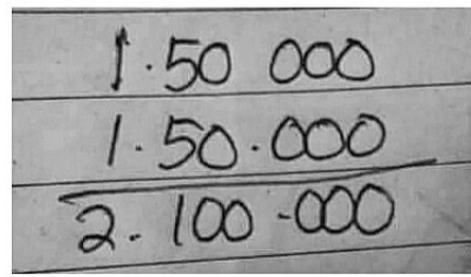 1.50 000
1.50.000
2.100.000